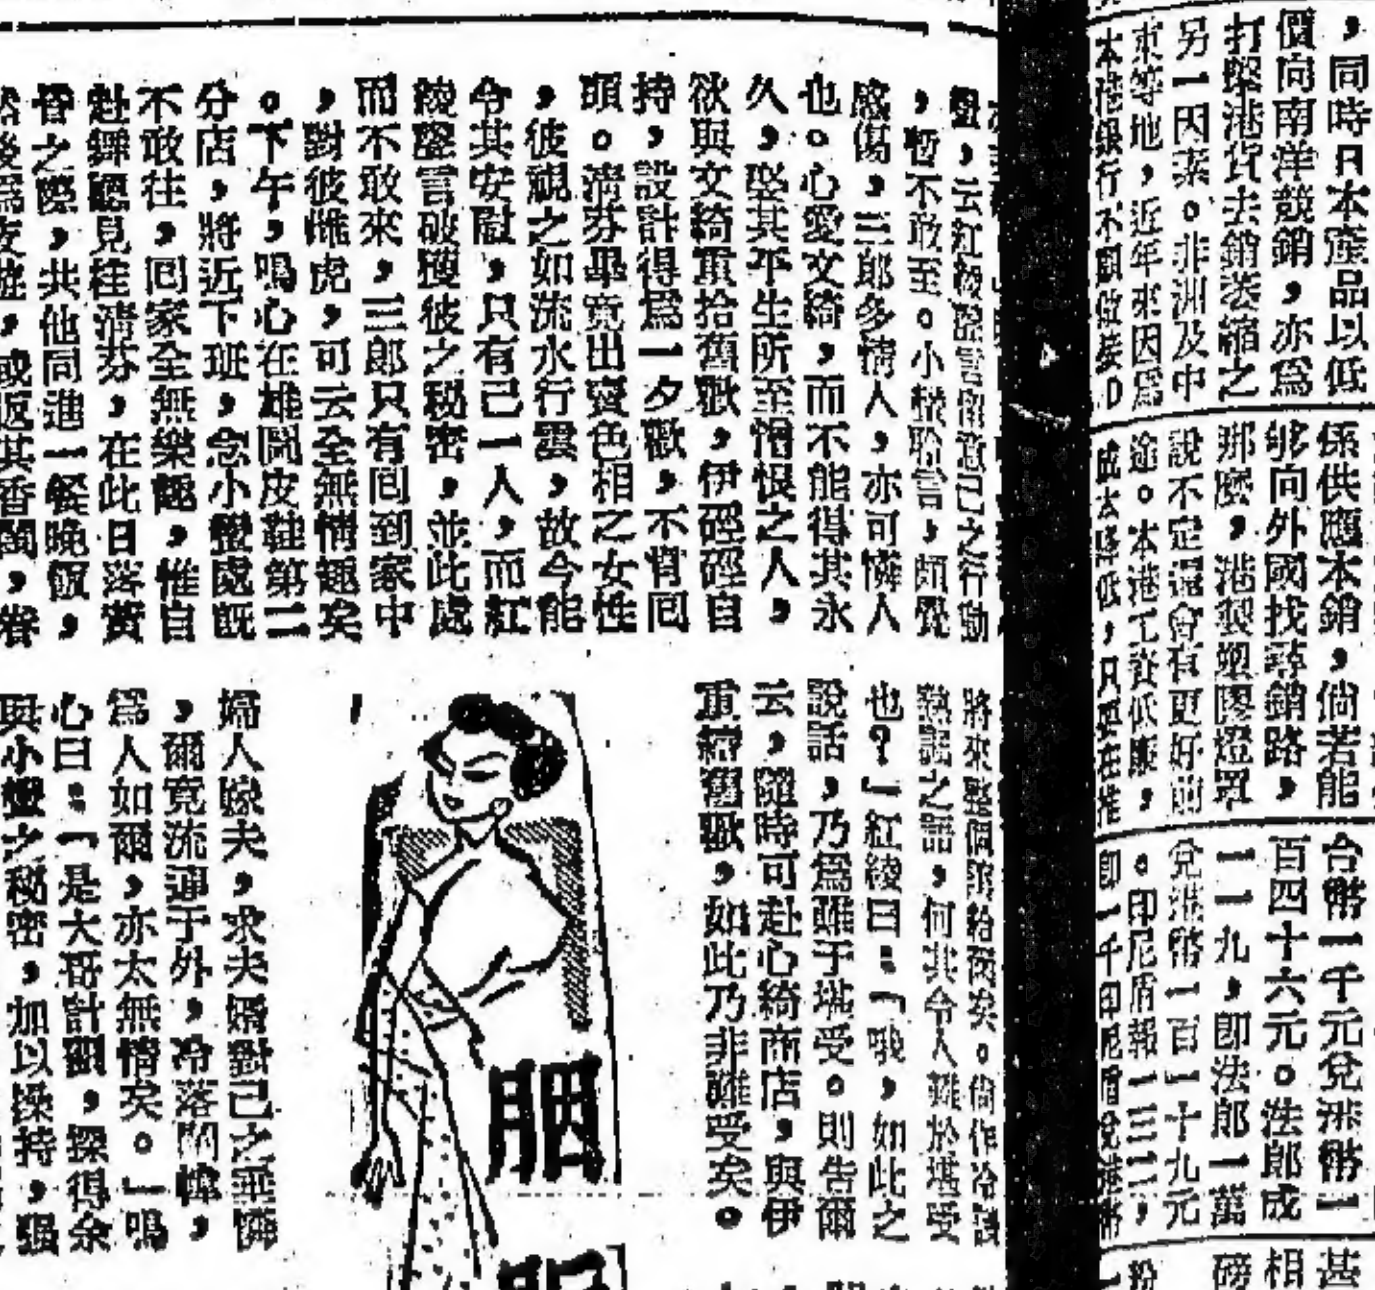 ，同時日本產品以低
價向南洋競銷，亦爲
打擊港貨去銷萎縮之
另一因素。非洲及中
東等地，近年來因爲
本港銀行不願做接D
係供應本銷，倘若能
够向外國找尋銷路，
那麼，港製塑膠燈罩
說不定還會有更好前
途。本港工資低廉，
成本降低，只要在推
台幣一千元兌港幣一
百四十六元。法郎成
一一九，即法郎一萬
兌港幣一百一十九元
。印尼盾報一三三，
即一千印尼盾兌港幣
甚
相
磅
，云紅綾
，暫不敢至。小鬟聆言，頗覺
感傷，三郎多情人，亦可憐人
也。心愛文綺，而不能得其永
久，娶其平生所至憎恨之人，
欲與文綺重拾舊歡，伊硜硜自
持，設計得爲一夕歡，不肯囘
頭。清芬畢竟出賣色相之女性
，彼視之如流水行雲，故今能
令其安慰，只有己一人，而紅
綾罄言破獲彼之秘密，並此處
而不敢來，三郎只有囘到家中
，對彼雌虎，可云全無情趣矣
。下午，鳴心在雄圖皮鞋第二
分店，將近下班，念小鬟處既
不敢往，囘家全無樂趣，惟自
赴舞廳見桂清芬，在此日落黃
昏之際，共他同進一餐晚飯，
然後爲友遊，或返其香閨，眷
將來整個歸給爾矣。倘作冷諷
熱謔之語，何其令人難於堪受
也？」紅綾曰：「哦，如此之
說話，乃爲難于堪受。則告爾
云，隨時可赴心綺商店，與伊
重續舊歡，如此乃非難受矣。
胭
婦人嫁夫，求夫婿對己之垂憐
，爾竟流連于外，冷落閨幃，
爲人如爾，亦太無情矣。」鳴
心曰：「是大哥計劃，探得余
與小鬟之秘密，加以操持，强